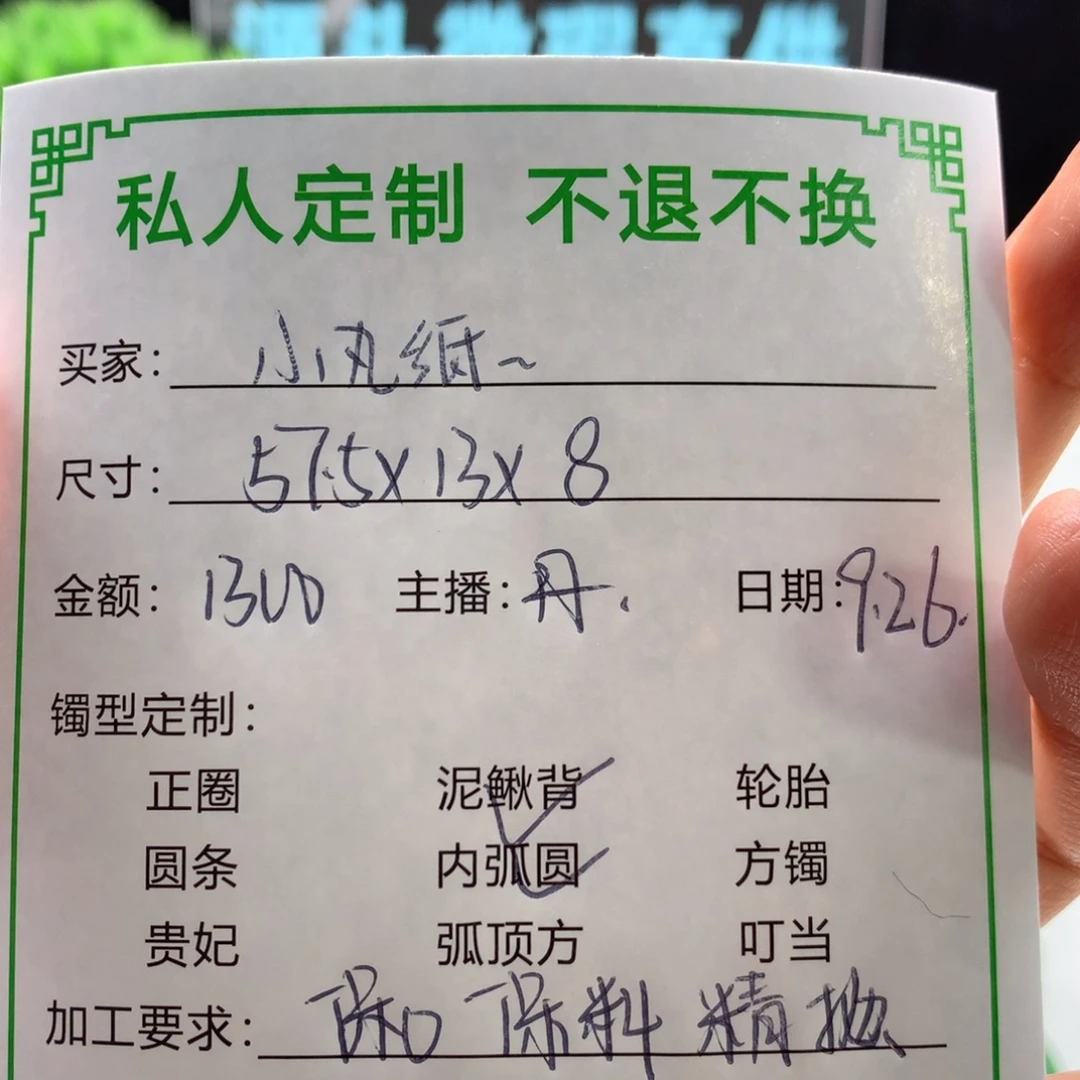 私人定制 不退不换
买家: 小凡纸~
尺寸: 57.5x13x8
金额: 1300 主播: 丹. 日期: 9.26.
镯型定制:
正圈 泥鳅背 轮胎
圆条 内弧圆 方镯
贵妃 弧顶方 叮当
加工要求: 保口 保料 精抛